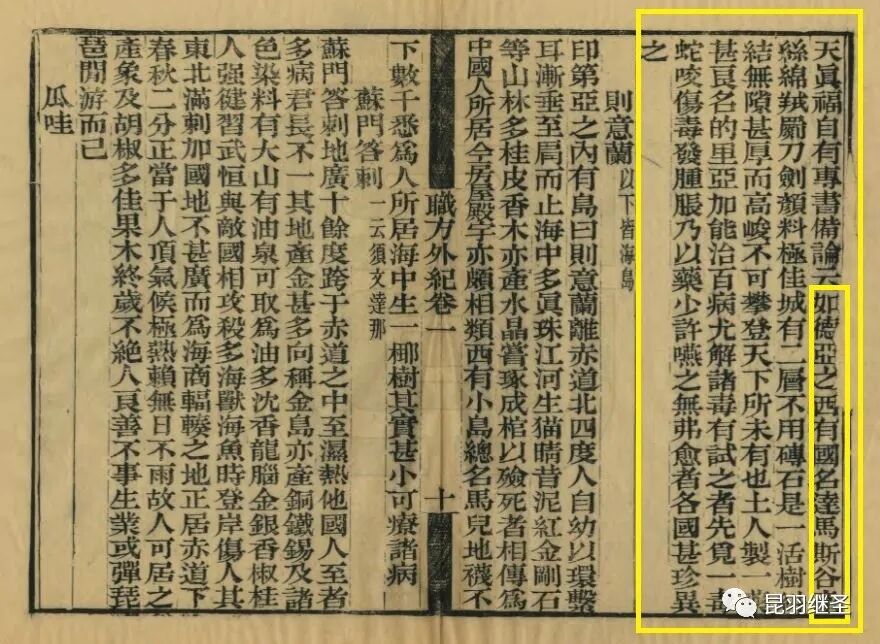 天眞福自有專書備論云如德亞之西有國名達馬斯谷
絲綿羢罽刀劍顏料極佳城有二層不用磚石是一活樹
結無隙甚厚而高峻不可攀登天下所未有也土人製一
甚良名的里亞加能治百病尤解諸毒有試之者先覓一毒
蛇咬傷毒發腫脹乃以藥少許嚥之無弗愈者各國甚珍異
之
則意蘭 以下皆海島
印第亞之內有島曰則意蘭離赤道北四度人自幼以環繫
耳漸垂至肩而止海中多眞珠江河生猫睛昔泥紅金剛石
等山林多桂皮香木亦產水晶嘗琢成棺以殮死者相傳爲
中國人所居今房屋殿宇亦頗相類西有小島總名馬兒地襪不
職方外紀卷一 十
下數千悉爲人所居海中生一椰樹其實甚小可療諸病
蘇門答剌 一云須文達那
蘇門答剌地廣十餘度跨于赤道之中至濕熱他國人至者
多病君長不一其地產金甚多向稱金島亦產銅鐵錫及諸
色染料有大山有油泉可取爲油多沈香龍腦金銀香椒桂
人强健習武恒與敵國相攻殺多海獸海魚時登岸傷人其
東北滿剌加國地不甚廣而爲海商輻輳之地正居赤道下
春秋二分正當于人頂氣候極熱賴無日不雨故人可居之
產象及胡椒多佳果木終歲不絕人良善不事生業或彈琵
琶閒游而已
瓜哇
昆羽继圣